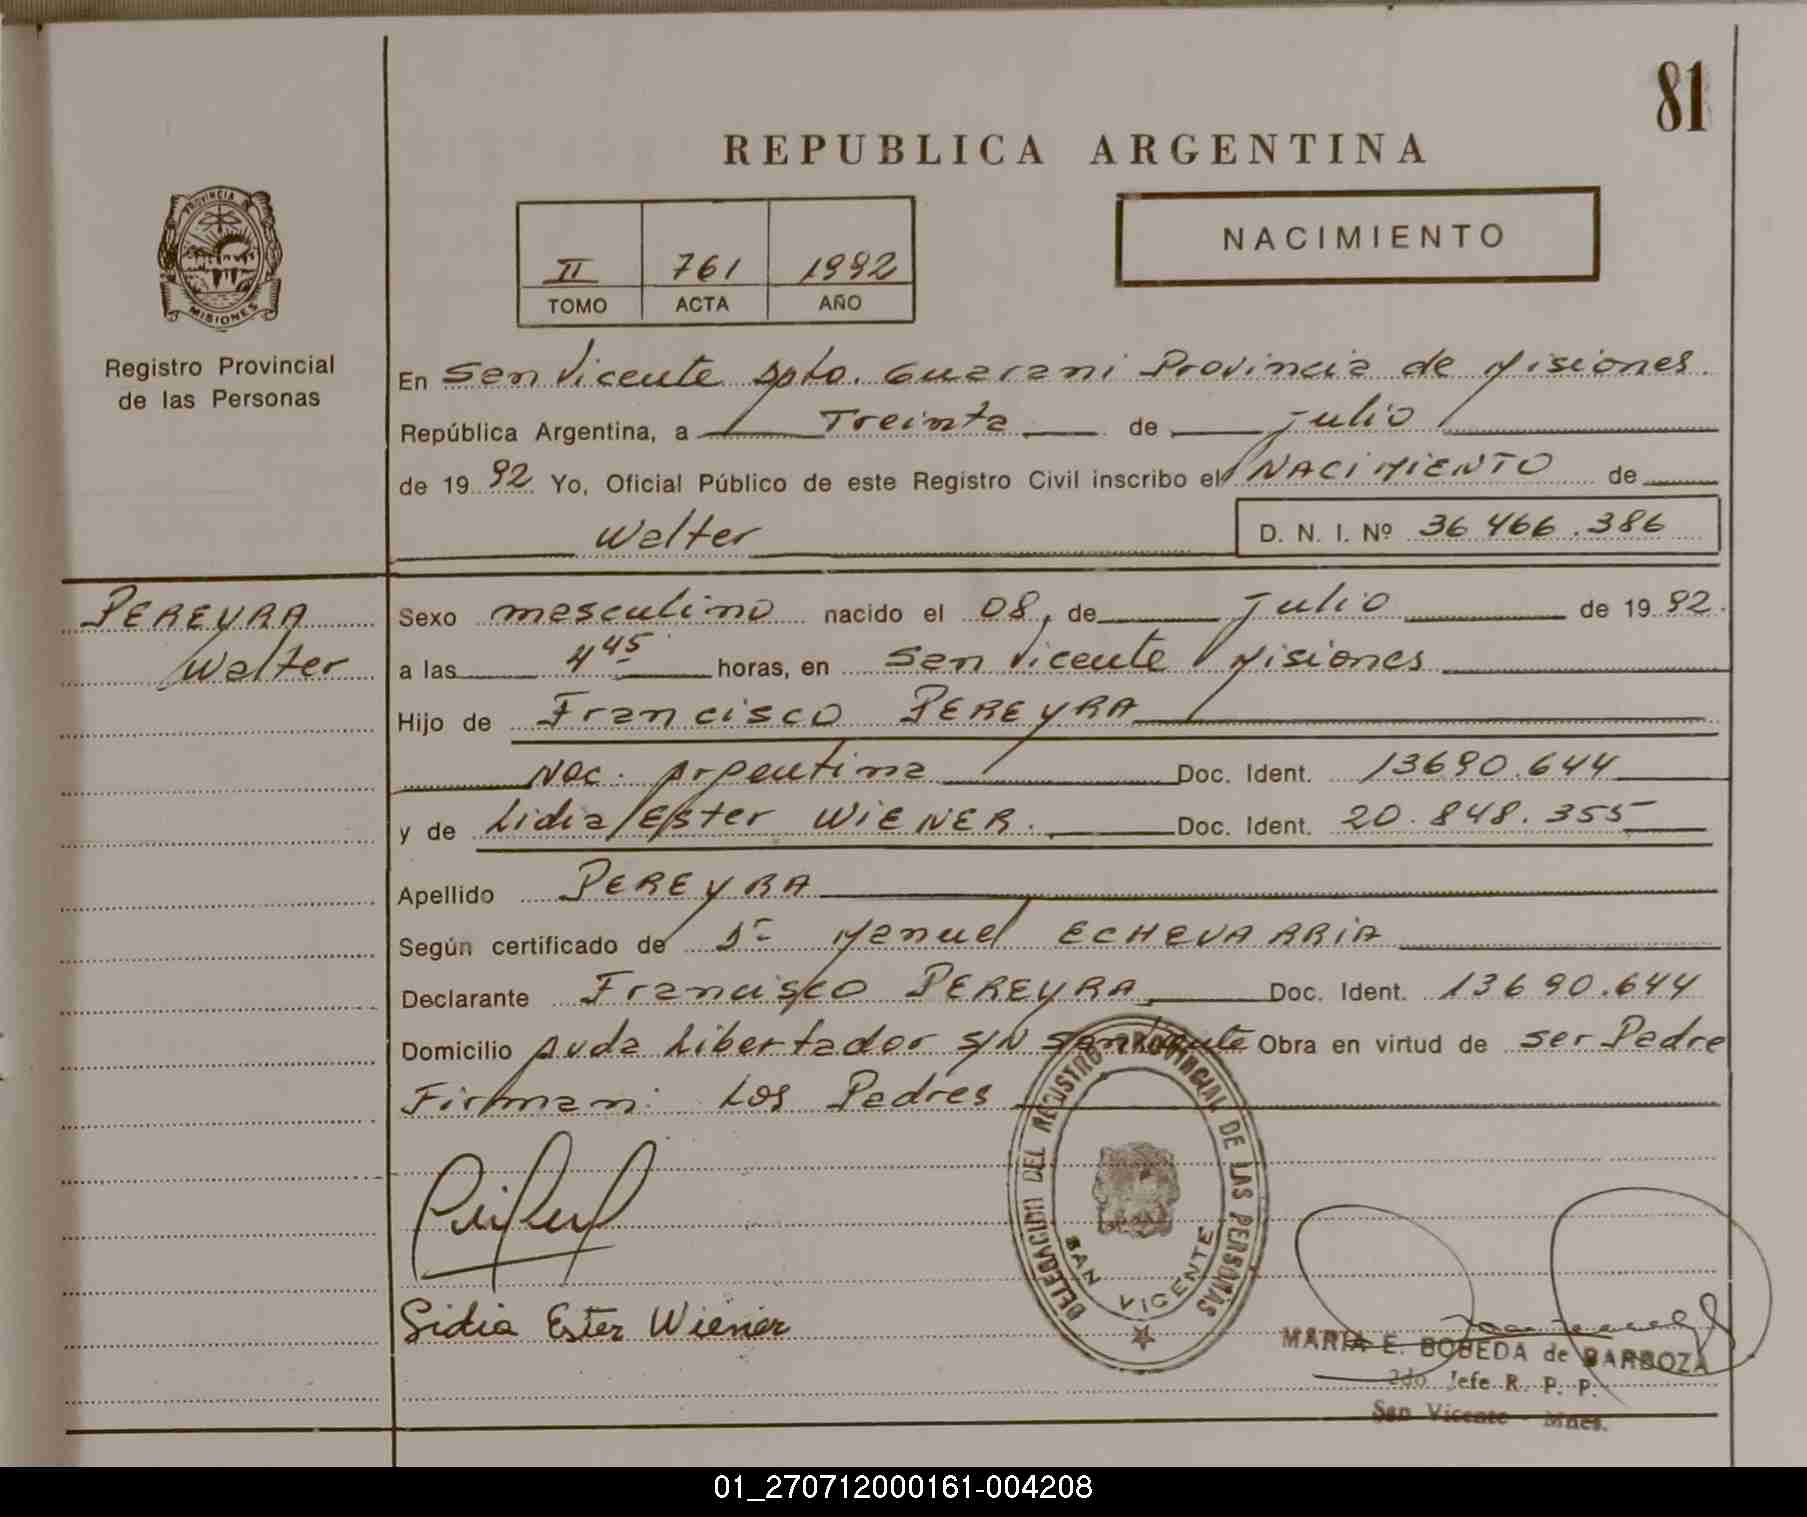 81
REPUBLICA ARGENTINA
NACIMIENTO
II 761 1992
TOMO ACTA AÑO
PROVINCIA DE
MISIONES
Registro Provincial
de las Personas
En San Vicente Dpto. Guarani Provincia de Misiones.
República Argentina, a Treinta de Julio
de 1992 Yo, Oficial Público de este Registro Civil inscribo el NACIMIENTO de
Walter D. N. I. Nº 36 466.386
PEREYRA
Walter
Sexo masculino nacido el 08, de Julio de 1992.
a las 4 45 horas, en San Vicente Misiones
Hijo de Francisco PEREYRA
Nac. Argentina Doc. Ident. 13690.644
y de Lidia Ester WIENER. Doc. Ident. 20.848.355
Apellido PEREYRA
Según certificado de Dr Manuel ECHEVARRIA
Declarante Francisco PEREYRA Doc. Ident. 13690.644
Domicilio Avda Libertador S/N San Vicente Obra en virtud de ser Padre
Firman: Los Padres
DELEGACION DEL REGISTRO PROVINCIAL DE LAS PERSONAS
SAN VICENTE
Lidia Ester Wiener
MARIA E. BOBEDA de BARBOZA
2do Jefe R. P. P.
San Vicente - Mnes.
01_270712000161-004208